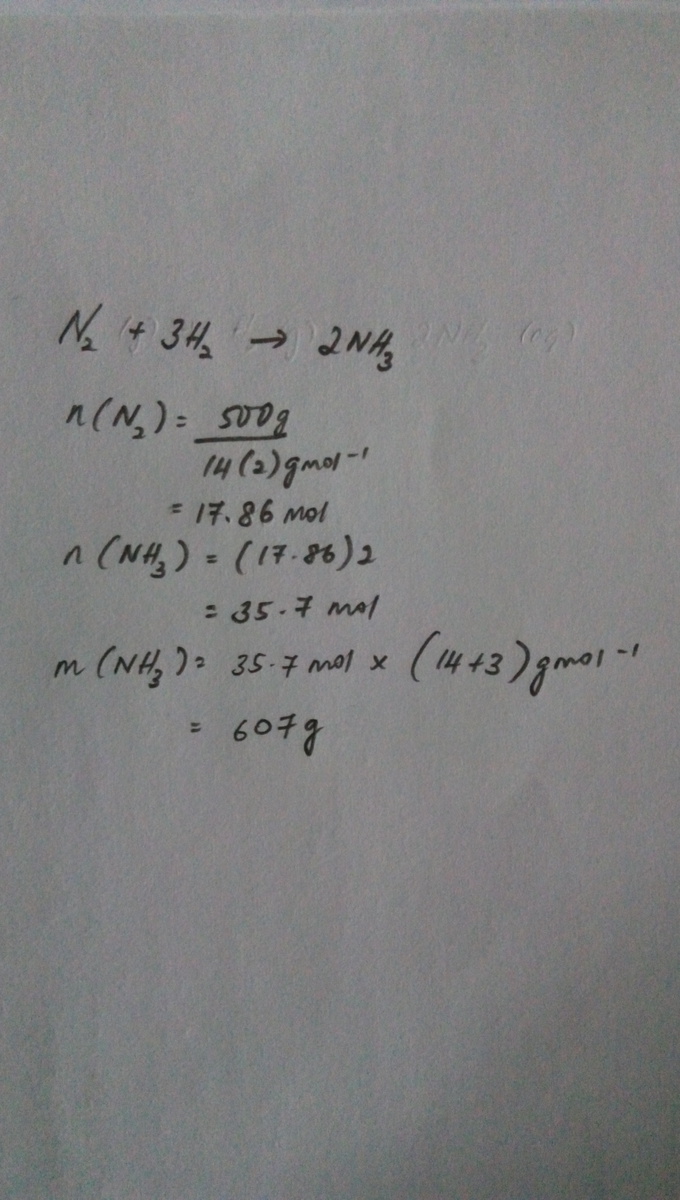 N₂ + 3H₂ → 2NH₃
n(N₂) = 500g
14(2)gmol⁻¹
= 17.86 mol
n(NH₃) = (17.86)2
= 35.7 mol
m(NH₃) = 35.7 mol x (14+3)gmol⁻¹
= 607g